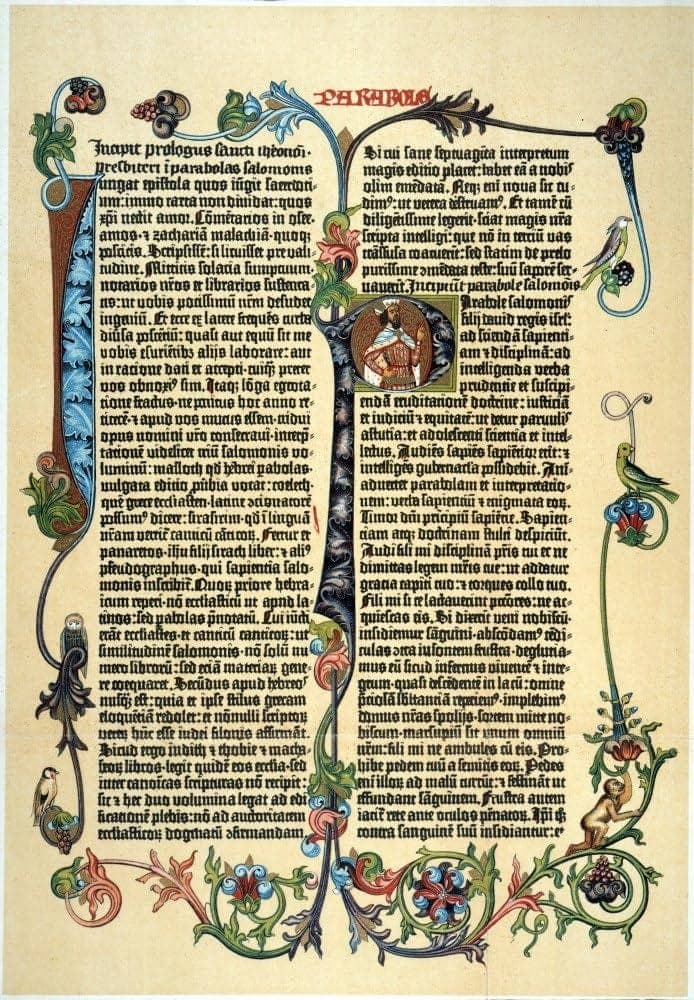 PARABOLE
Incipit prologus sancti iheronimi
presbiteri i parabolas salomonis
Iungat epistola quos iūgit sacerdoti-
um: immo carta non diuidat: quos
xp̄i nectit amor. Cōmētarios in osee.
amos. ⁊ zachariā malachiā. quoq;
poscitis. Scripsissē: si licuisset pre vali-
tudine. Mittitis solacia sumptuum.
notarios nr̄os et librarios sustenta-
tis: ut vobis potissimū nr̄m desudet
ingeniū. Et ecce ex latere frequēs turba
diūsa poscētiū: quasi aut equū sit me
vobis esuriētib; alijs laborare: aut
in ratione dati et accepti. cuiq; preter
vos obnoxiꝰ sim. Itaq; lōga egrota-
tione fractus. ne penitus hoc anno re-
ticerē. ⁊ apud vos mutus essem. tridui
opus nomini vr̄o consecraui. interp̄-
tationē videlicet triū salomonis vo-
luminū: masloth qd̄ hebrei pabolas.
vulgata editio ꝓūbia vocat: coeleth.
quē grece ecclesiasten. latine ↄcionatorē
possumꝰ dicere: sirasirim. qd̄ i linguā
nr̄am vertit̄ canticū cāticoꝝ. Fertur et
panaretos. ihū filij sirach liber: ⁊ aliꝰ
pseudographus. qui sapientia salo-
monis inscribit̄. Quoꝝ priore hebra-
icum reperi. nō ecclesiasticū ut apud la-
tinos: sed pabolas p̄notatū. Cui iūcti
erāt ecclesiastes. et canticū canticoꝝ: ut
similitudinē salomonis. nō solū nu-
mero librorū: sed etiā materiaꝝ gene-
re coequaret. Secūdus apud hebreos
nusq̄ est: quia et ipse stilus grecam
eloquētiā redolet: et nōnulli scriptoꝝ
veteꝝ hūc esse iudei filonis affirmāt.
Sicud ergo iudith ⁊ thobie ⁊ macha-
beoꝝ libros. legit quidē eos ecclesia. sed
inter canonicas scripturas nō recipit:
sic ⁊ hec duo volumina legat ad edi-
ficationē plebis: nō ad auctoritatem
ecclesiasticoꝝ dogmatū ↄfirmandam.
Si cui sane septuagīta interpretum
magis editio placet: habet eā a nobis
olim emēdatā. Neq; enī noua sic cu-
dimꝰ: ut vetera destruamꝰ. Et tamē cū
diligētissime legerit. sciat magis nr̄a
scripta intelligi: que nō in terciū vas
trāsfusa coacuerīt: sed statim de prelo
purissime ↄmēdata teste: suū saporē ser-
uauerīt. Incipiūt parabole salomonis
Parabole salomonis
filij dauid regis isrl̄:
ad sciendā sapienti-
am ⁊ disciplinā: ad
intelligenda verba
prudentie et suscipi-
endā eruditationē doctrine: iusticiā
et iudiciū ⁊ equitatē: ut detur paruulis
astutia: et adolescenti scientia et intel-
lectus. Audiēs sapiēs sapiētior erit: ⁊
intelligēs gubernacla possidebit. Ani-
aduertet parabolam et interpretatio-
nem: verba sapientiū ⁊ enigmata eoꝝ.
Timor dn̄i principiū sapiētie. Sapien-
tiam atq; doctrinam stulti despiciūt.
Audi fili mi disciplinā pr̄is tui et ne
dimittas legem mr̄is tue: ut addatur
gracia capiti tuo: ⁊ torques collo tuo.
Fili mi si te lactauerint pctōres: ne ac-
quiescas eis. Si dixerīt veni nobiscū.
insidiemur sāguini. abscōdamꝰ tēdi-
culas ↄtra insontem frustra. degluti a-
mus eū sicud infernus viuentē ⁊ inte-
grum. quasi descēdentē in lacū: omnē
p̄ciosā sb̄stantiā repericmꝰ. implebimꝰ
domus nr̄as spolijs. sortem mitte no-
biscum. marsupiū sit unum omniū
nr̄m: fili mi ne ambules cū eis. Pro-
hibe pedem tuū a semitis eoꝝ. Pedes
enī illoꝝ ad malū currūt: ⁊ festināt ut
effundant sāguinem. Frustra autem
iacit̄ rete ante oculos pēnatoꝝ. Ipi q̄
contra sanguinē suū insidiantur: et